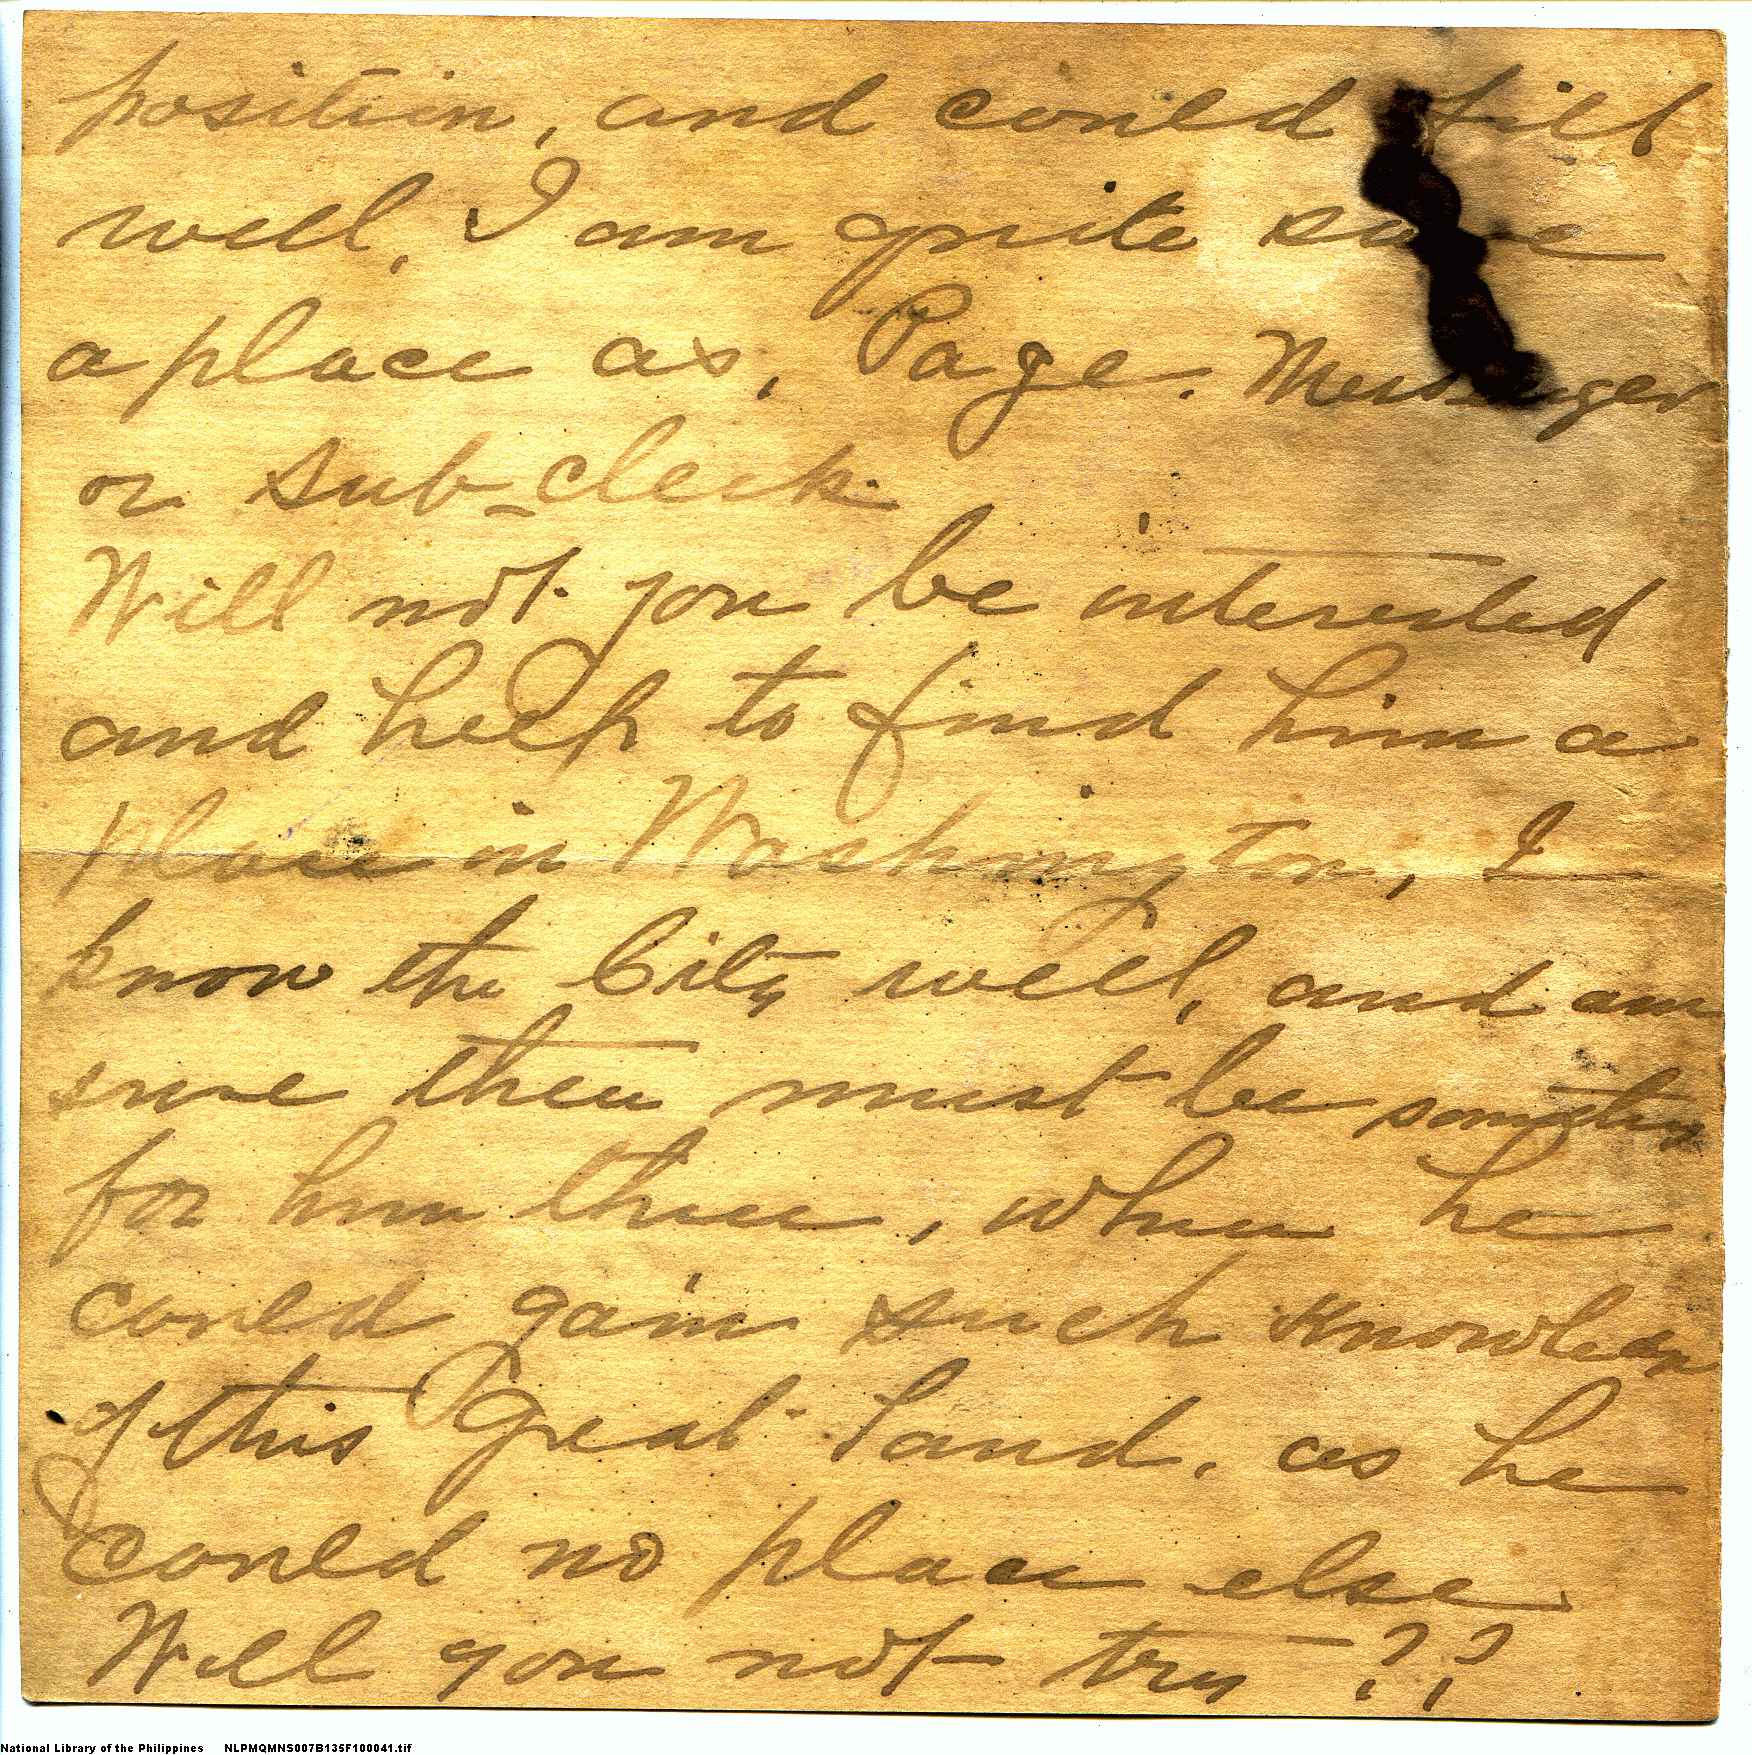 position, and could fill
well, I am quite sure
a place as, Page. Messenger
or sub-clerk.
Will not you be interested
and help to find him a
place in Washington, I
know the City well, and am
sure there must be something
for him there, where he
could gain such knowledge
of this Great Land, as he
could no place else
Will you not try ??
National Library of the Philippines NLPMQMNS007B135F100041.tif